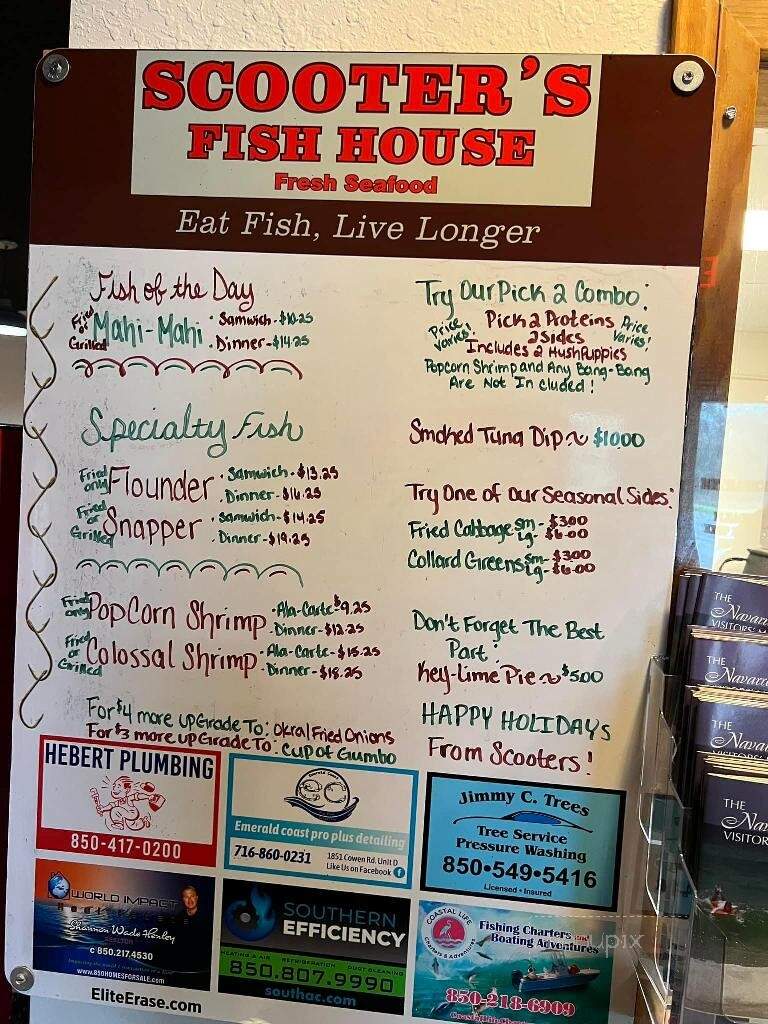 SCOOTER'S
FISH HOUSE
Fresh Seafood
Eat Fish, Live Longer
Fish of the Day
Fried or Grilled Mahi-Mahi · Samwich - $10.25
· Dinner - $14.25
Specialty Fish
Fried only Flounder · Samwich - $13.25
· Dinner - $16.25
Fried or Grilled Snapper · Samwich - $14.25
· Dinner - $19.25
Fried only PopCorn Shrimp · Ala-Carte $9.25
· Dinner - $12.25
Fried or Grilled Colossal Shrimp · Ala-Carte - $15.25
Dinner - $18.25
For $4 more upGrade To: Okra/Fried Onions
For $3 more upGrade To: Cup of Gumbo
Try Our Pick 2 Combo:
Price varies! Pick 2 Proteins Price Varies!
2 Sides
Includes 2 HushPuppies
Popcorn Shrimp and Any Bang-Bang
Are Not Included!
Smoked Tuna Dip ~ $10.00
Try One of Our Seasonal Sides:
Fried Cabbage sm - $3.00
lg - $6.00
Collard Greens sm - $3.00
lg - $6.00
Don't Forget The Best
Part:
Key-Lime Pie ~ $5.00
HAPPY HOLIDAYS
From Scooters!
HEBERT PLUMBING
850-417-0200
Emerald coast pro plus detailing
716-860-0231
1851 Cowen Rd. Unit D
Like Us on Facebook
Jimmy C. Trees
Tree Service
Pressure Washing
850•549•5416
Licensed • Insured
WORLD IMPACT
Shannon Wade Henley
REALTOR
c 850.217.4530
www.850HOMESFORSALE.com
SOUTHERN
EFFICIENCY
HEATING & AIR REFRIGERATION DUCT CLEANING
850.807.9990
southac.com
COASTAL LIFE
CHARTERS & ADVENTURES
Fishing Charters and
Boating Adventures
850-218-6909
EliteErase.com
THE
Navarre
VISITORS
THE
Navar
THE
Nava
VISITOR
THE
Nava
VISITOR
pix